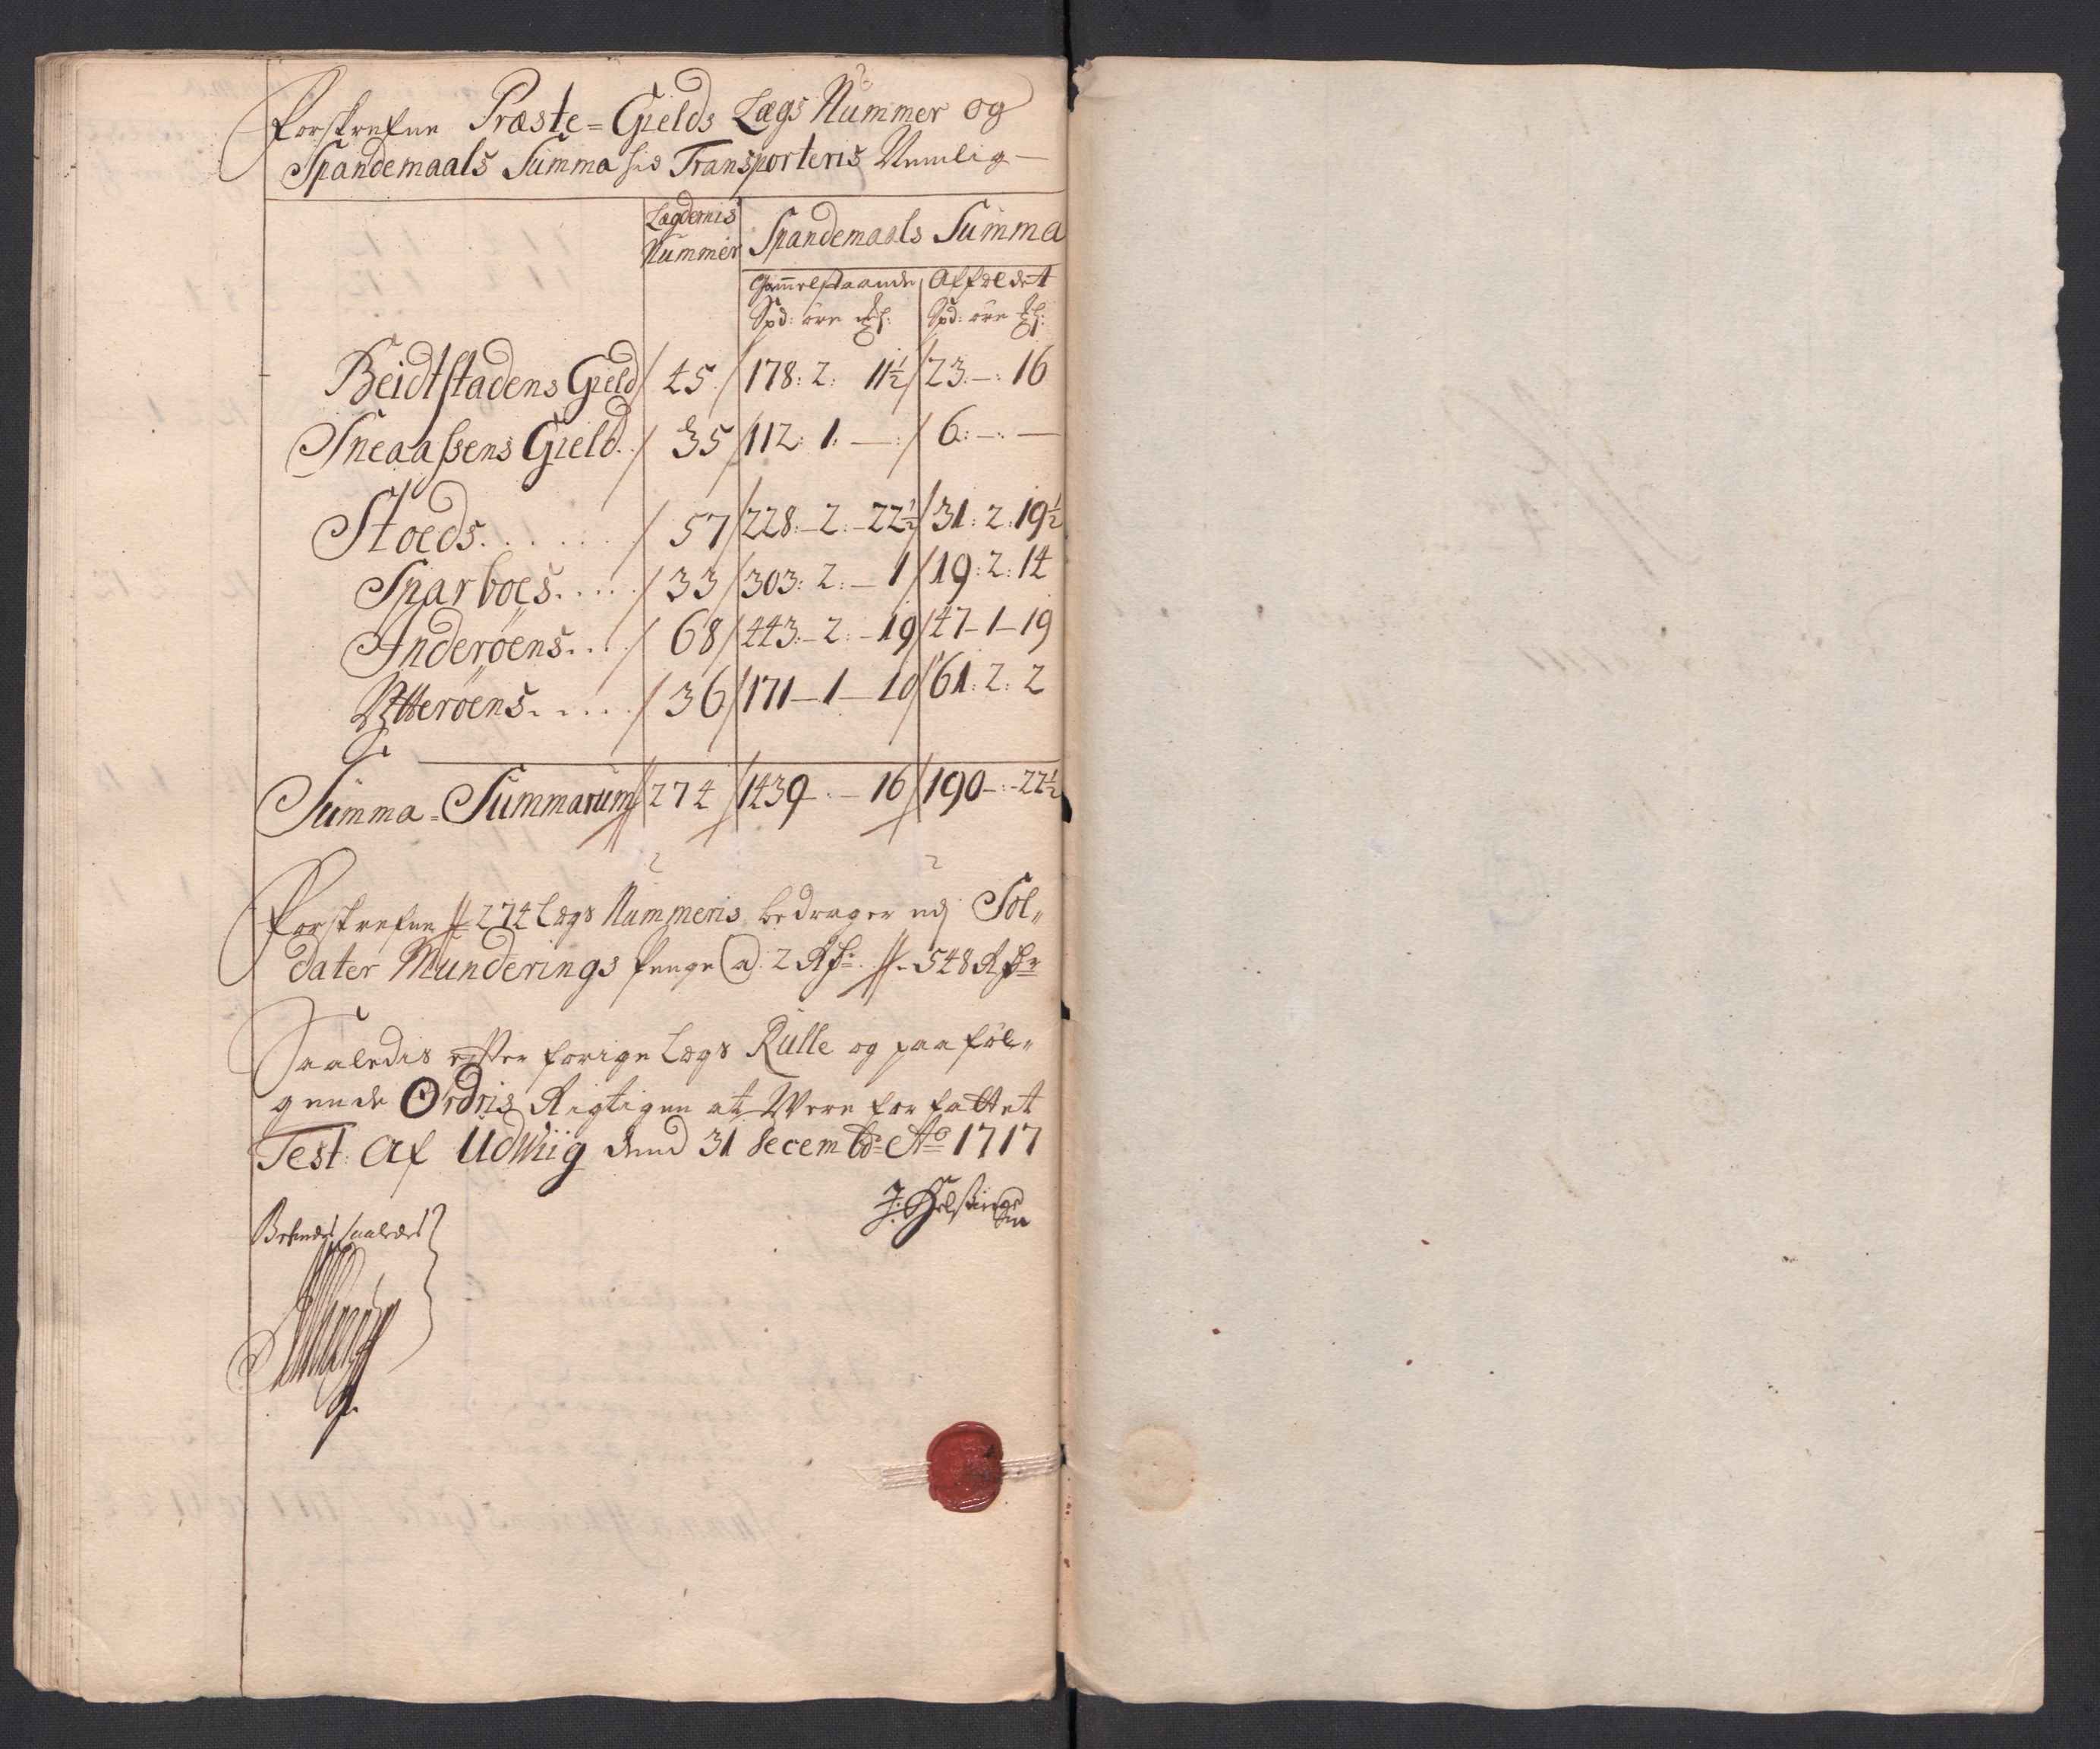 Forskrefne Præste=Gields Lægs Nummer og
Spandemaals Summa hid Transporteris Nemlig
Lægdernis Nummer Spandemaals Summa
Gammelstaande Affældet
Spd: öre Spd: öre
Beidtstadens Gield 45 178: 2: 11½ 23 –: 16
Sneaasens Gield. 35 112: 1: –: 6: –: –
Stoeds...... 57 228:– 2:– 22½ 31: 2: 19½
Sparboes..... 33 303: 2:– 1 19: 2: 14
Inderøens.... 68 443:– 2:– 19 47– 1– 19
Ytterøens..... 36 171– 1– 10 61: 2: 2
Summa=Summarum 274 1439 –.– 16 190–:–22½
Forskrefne 274 Lægs Nummeris bedrager udj Sol„
dater Munderings Penge a. 2 Rdr. 548 Rdr
Saaledis efter forige Lægs Rulle og paa föl„
gende Ordris Rigtigen at Were forfattet
Test: Af Udwiig dend 31 decembr Ao 1717
Bekendes saaledes